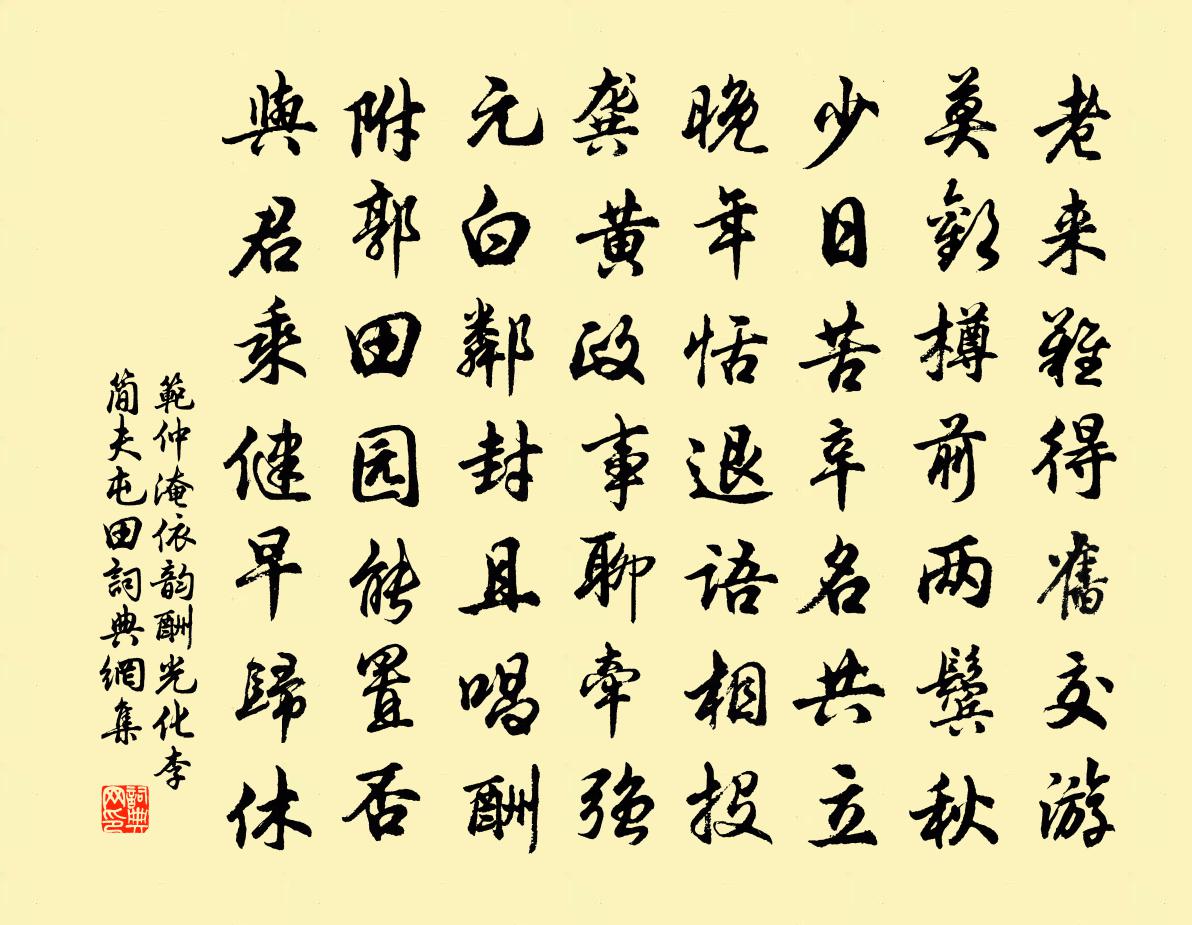 老来難得舊交游
莫歎樽前两鬓秋
少日苦辛名共立
晚年恬退语相投
龚黄政事聊牵强
元白鄰封且唱酬
附郭田园能置否
與君乘健早歸休
範仲淹依韵酬光化李
简夫屯田詞典網集
詞典网印